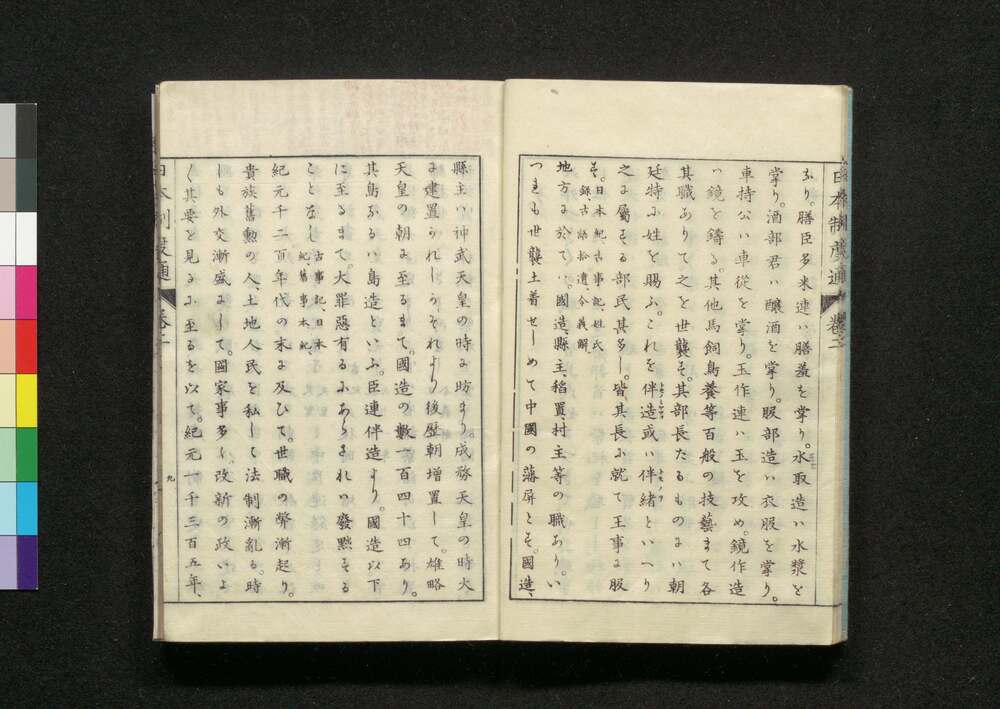 なり。膳臣多米連ハ膳羞を掌り。水取造ハ水漿と
掌り。酒部君ハ釀酒を掌り。服部造ハ衣服を掌り。
車持公ハ車從を掌り。玉作連ハ玉を攻め。鏡作造
ハ鏡を鑄る。其他馬飼鳥養等百般の技藝まて各
其職ありて之を世襲そ。其部長たるものには朝
廷特に姓を賜ふ。これを伴造或ハ伴緒といへり
之に屬そる部民甚多し。皆其長に就て王事に服
そ。日本紀、古事記、姓氏
錄、古語拾遺、令義解、
地方に於てハ。國造、縣主、稻置、村主等の職あり。い
つれも世襲土着せしめて中國の藩屏とそ。國造、
日本制度通
卷二
縣主ハ神武天皇の時に昉まり。成務天皇の時大
に建置られしうそれより後歷朝增置して。雄略
天皇の朝に至るまて。國造の數一百四十四あり。
其島なるハ島造といふ。臣連伴造より。國造以下
に至るまて。大罪惡有るにあらされハ廢黙そる
ことなし
古事記、日本
紀、舊事本紀、
紀元千二百年代の末に及ひて。世職の弊漸起り。
貴族舊勲の人、土地人民を私して法制漸亂る。時
しも外交漸盛にして。國家事多く改新の政いよ
く其要と見るに至るを以て。紀元一千三百五年、
九